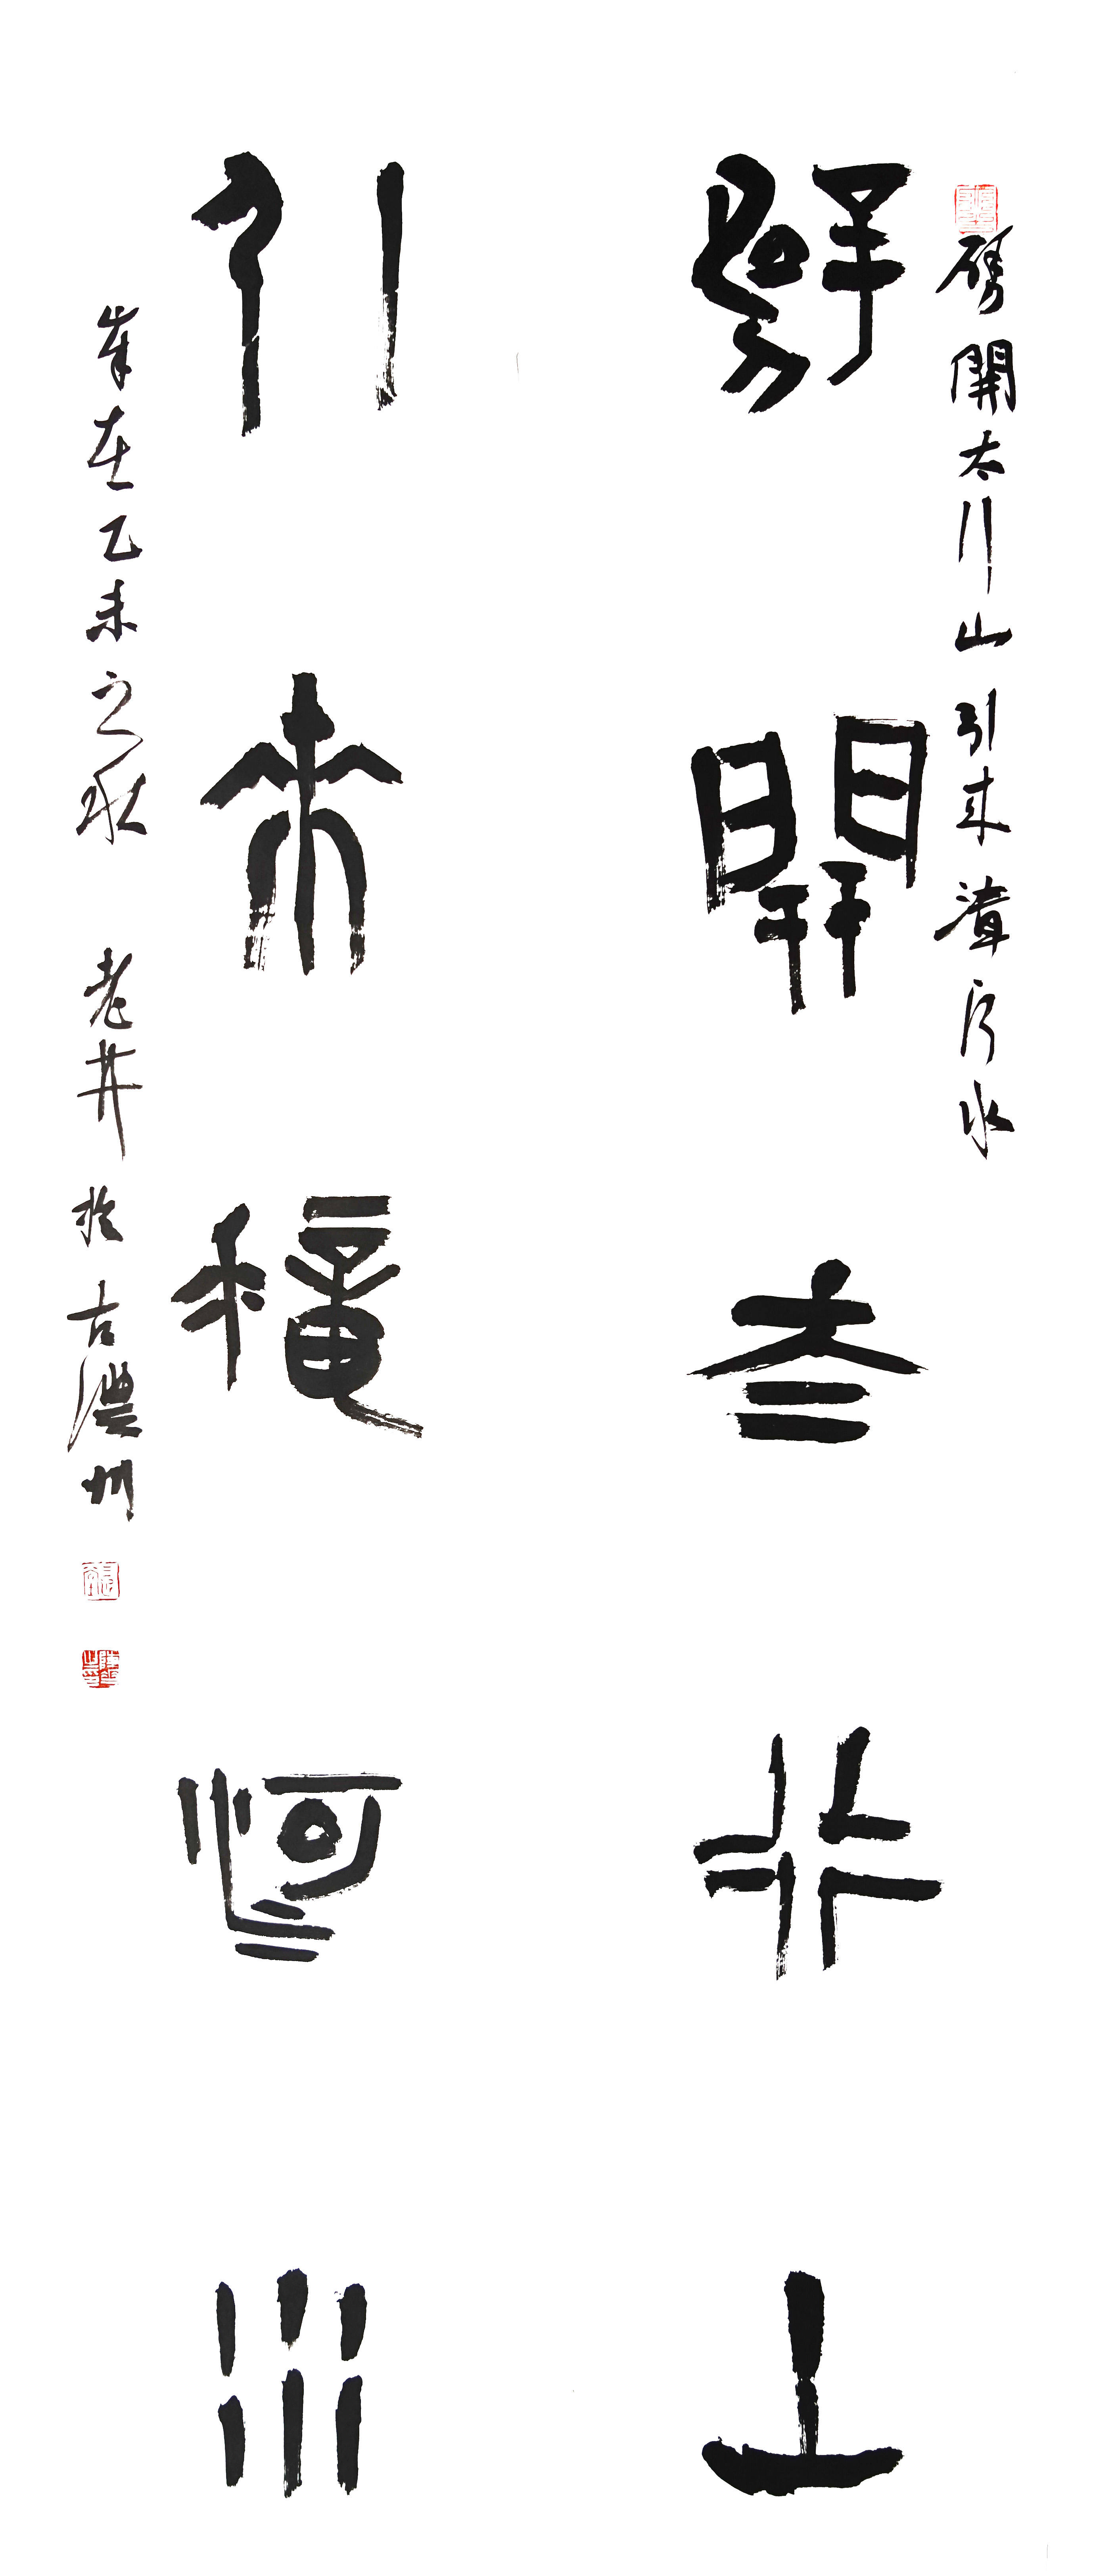 劈開太行山 引来漳河水
劈開太行山
引來漳河水
歲在乙未之秋 老井 於古澧州